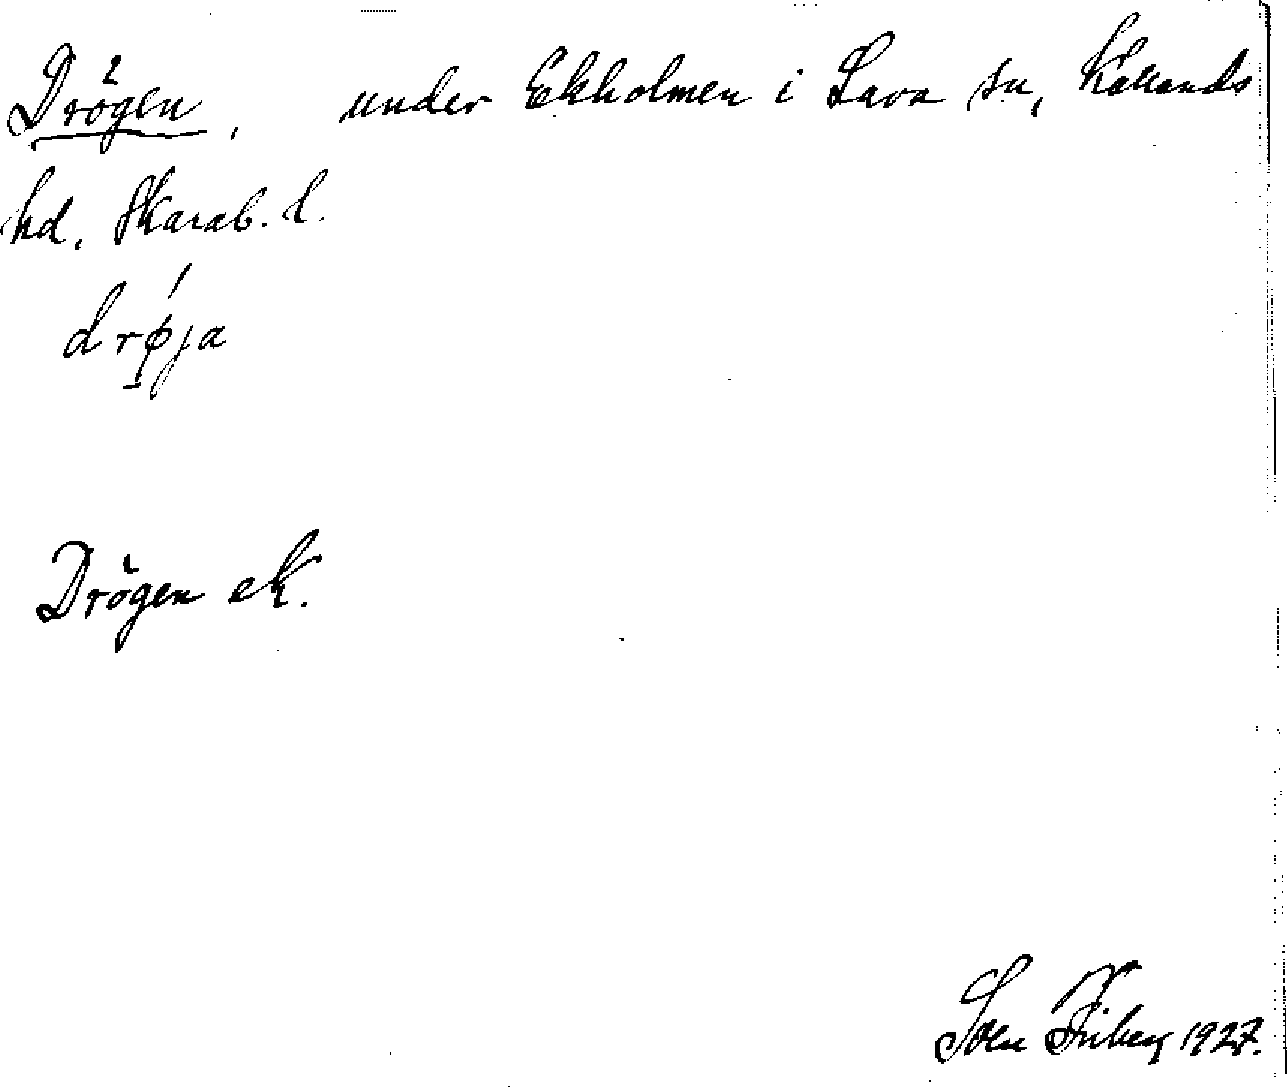 Drögen, under Ekholmen i Sava sn, Kållands
hd, Skarab. l.
drøja
Drögen ek.
Sven Friberg 1927.